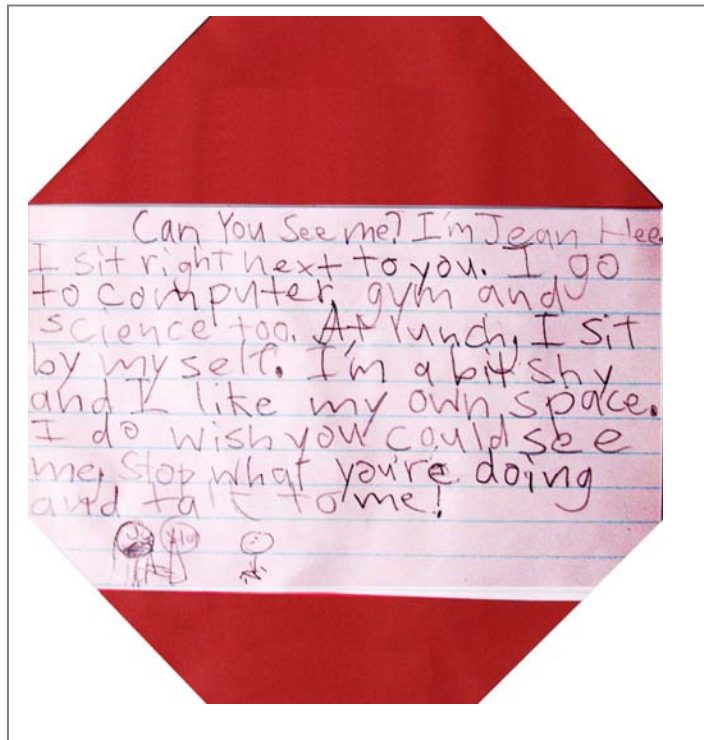 Can You See me? I'm Jean Hee.
I sit right next to you. I go
to computer, gym and
science too. At lunch, I sit
by myself. I'm a bit shy
and I like my own space.
I do wish you could see
me. Stop what you're doing
and talk to me!
You